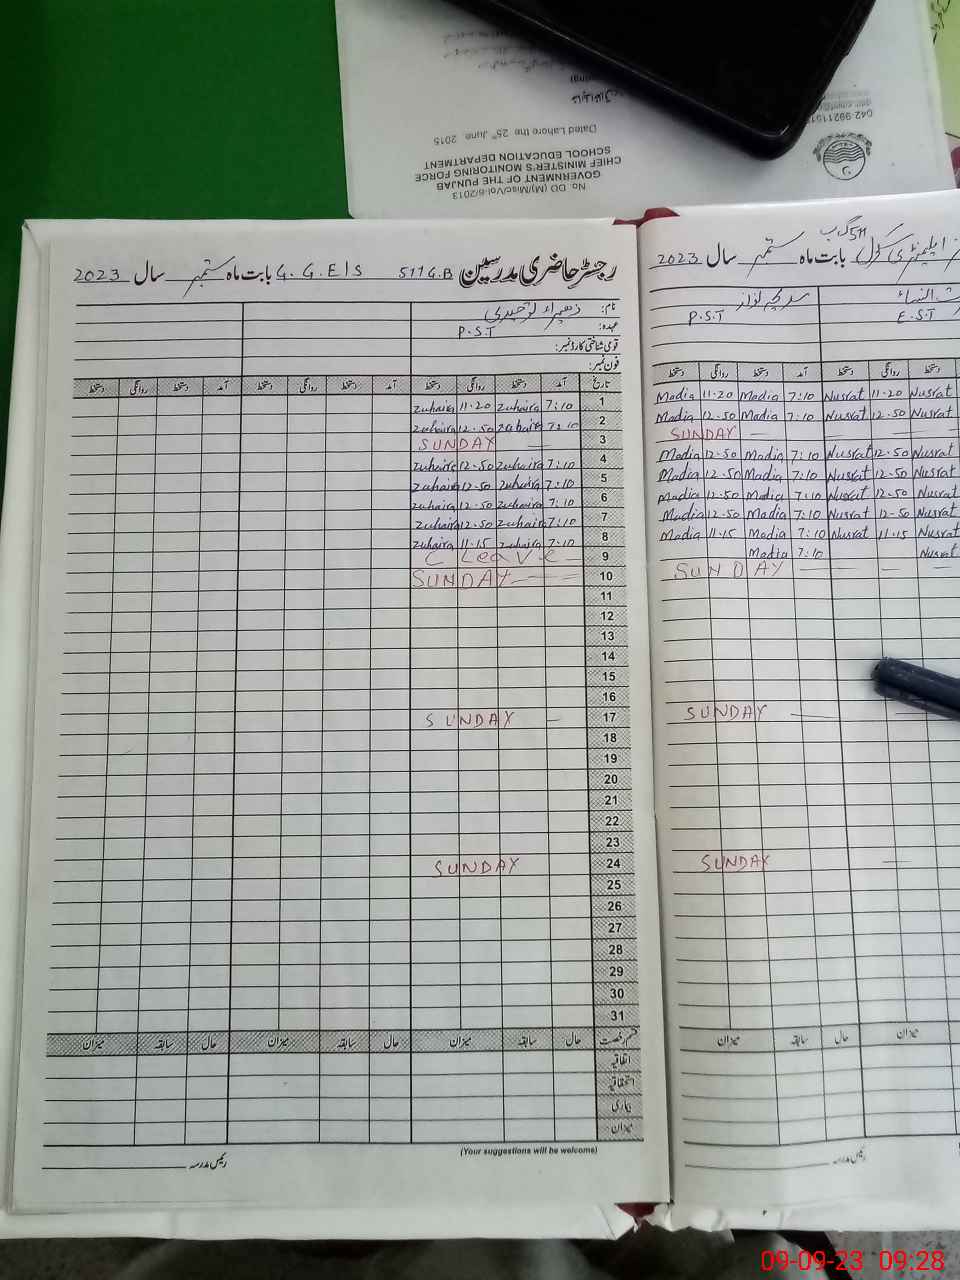 042 9921151
Dated Lahore the 25th June 2015
No. DD (M)/Misc/Vol-6/2013
GOVERNMENT OF THE PUNJAB
CHIEF MINISTER'S MONITORING FORCE
SCHOOL EDUCATION DEPARTMENT
رجسٹر حاضری مدرسین 511 G.B G.G.E/S بابت ماہ ستمبر سال 2023
نام:
عہدہ: P.S.T
قومی شناختی کارڈ نمبر:
فون نمبر:
تاریخ آمد دستخط روانگی دستخط آمد دستخط روانگی دستخط آمد دستخط روانگی دستخط
1 7:10 Zuhaira 11-20 Zuhaira
2 7:10 Zuhaira 12-50 Zuhaira
3 SUNDAY
4 7:10 Zuhaira 12-50 Zuhaira
5 7:10 Zuhaira 12-50 Zuhaira
6 7:10 Zuhaira 12-50 Zuhaira
7 7:10 Zuhaira 12-50 Zuhaira
8 7:10 Zuhaira 11-15 Zuhaira
9 C Leave
10 SUNDAY
11
12
13
14
15
16
17 SUNDAY
18
19
20
21
22
23
24 SUNDAY
25
26
27
28
29
30
31
قسم رخصت حال سابقہ میزان حال سابقہ میزان حال سابقہ میزان
اتفاقیہ
استحقاقیہ
بیماری
میزان
(Your suggestions will be welcome)
رئیس مدرسہ
511 گ ب
ایلیمنٹری سکول بابت ماہ ستمبر سال 2023
النساء
E.S.T P.S.T
دستخط روانگی دستخط آمد دستخط روانگی دستخط
Madia 11-20 Madia 7:10 Nusrat 11-20 Nusrat
Madia 12-50 Madia 7:10 Nusrat 12-50 Nusrat
SUNDAY
Madia 12-50 Madia 7:10 Nusrat 12-50 Nusrat
Madia 12-50 Madia 7:10 Nusrat 12-50 Nusrat
Madia 12-50 Madia 7:10 Nusrat 12-50 Nusrat
Madia 12-50 Madia 7:10 Nusrat 12-50 Nusrat
Madia 11-15 Madia 7:10 Nusrat 11-15 Nusrat
Madia 7:10 Nusrat
SUNDAY
SUNDAY
SUNDAY
میزان سابقہ حال میزان
رئیس مدرسہ
09-09-23 09:28